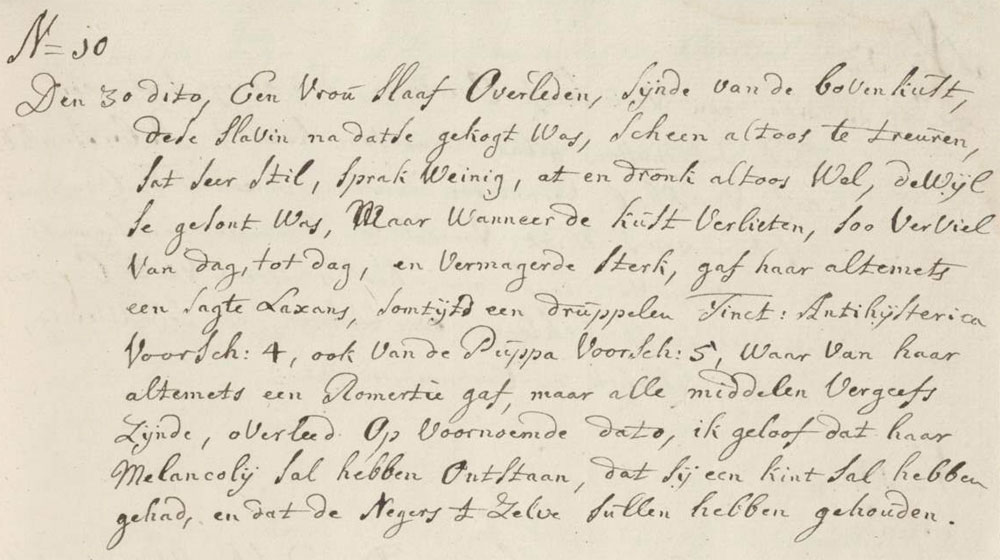 N=10
Den 30 dito, Een vroū slaaf Overleden, sijnde van de bovenkūst,
dese slavin na datse gekogt was, scheen altoos te treūren,
sat seer stil, sprak weinig, at en dronk altoos wel, dewijl
se gesont was, Maar wanneer de kūst verlieten, soo verviel
van dag, tot dag, en vermagerde sterk, gaf haar altemets
een sagte Laxans, somtijts een drūppelen Tinct: Antihijsterica
voorsch: 4, ook van de Pūppa voorsch: 5, waar van haar
altemets een Romertie gaf, maar alle middelen vergeefs
zijnde, overleed op voornoemde dato, ik geloof dat haar
Melancolij sal hebben ontstaan, dat sij een kint sal hebben
gehad, en dat de Negers t zelve sūllen hebben gehouden.